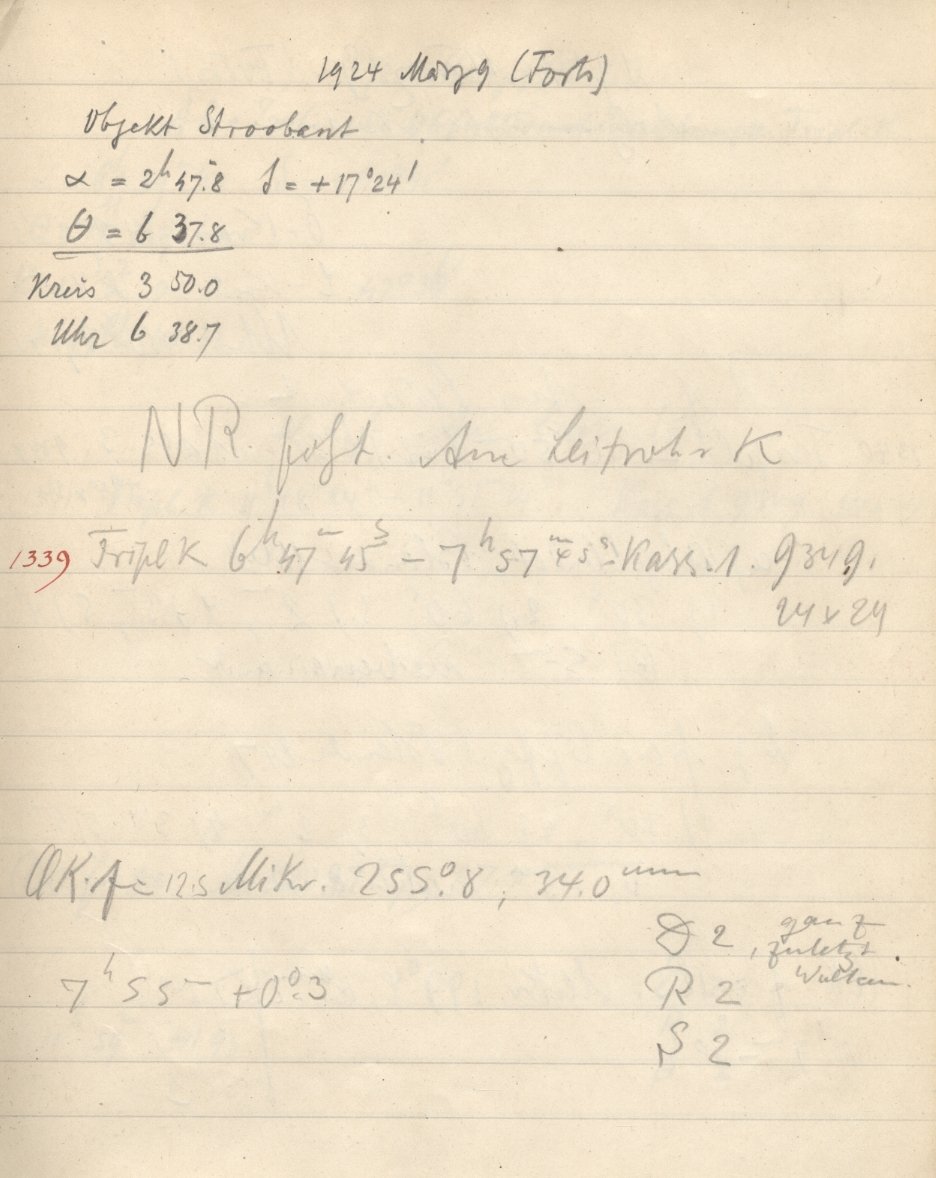 1924 März 9 (Forts)
Objekt Stroobant
α = 2h 47m.8 δ = +17°24'
θ = 6 37.8
Kreis 3 50.0
Uhr 6 38.7
NR. folgt. Am Leitrohr K
1339 Tripl K 6h 47m 45s – 7h 57m 45s. Kass. 1. 9349.
24 x 24
OK. f = 12.5 Mikr. 255°.8, 34.0 mm
D 2, ganz
zuletzt
Wolken.
7h 55m +0°.3 R 2
S 2